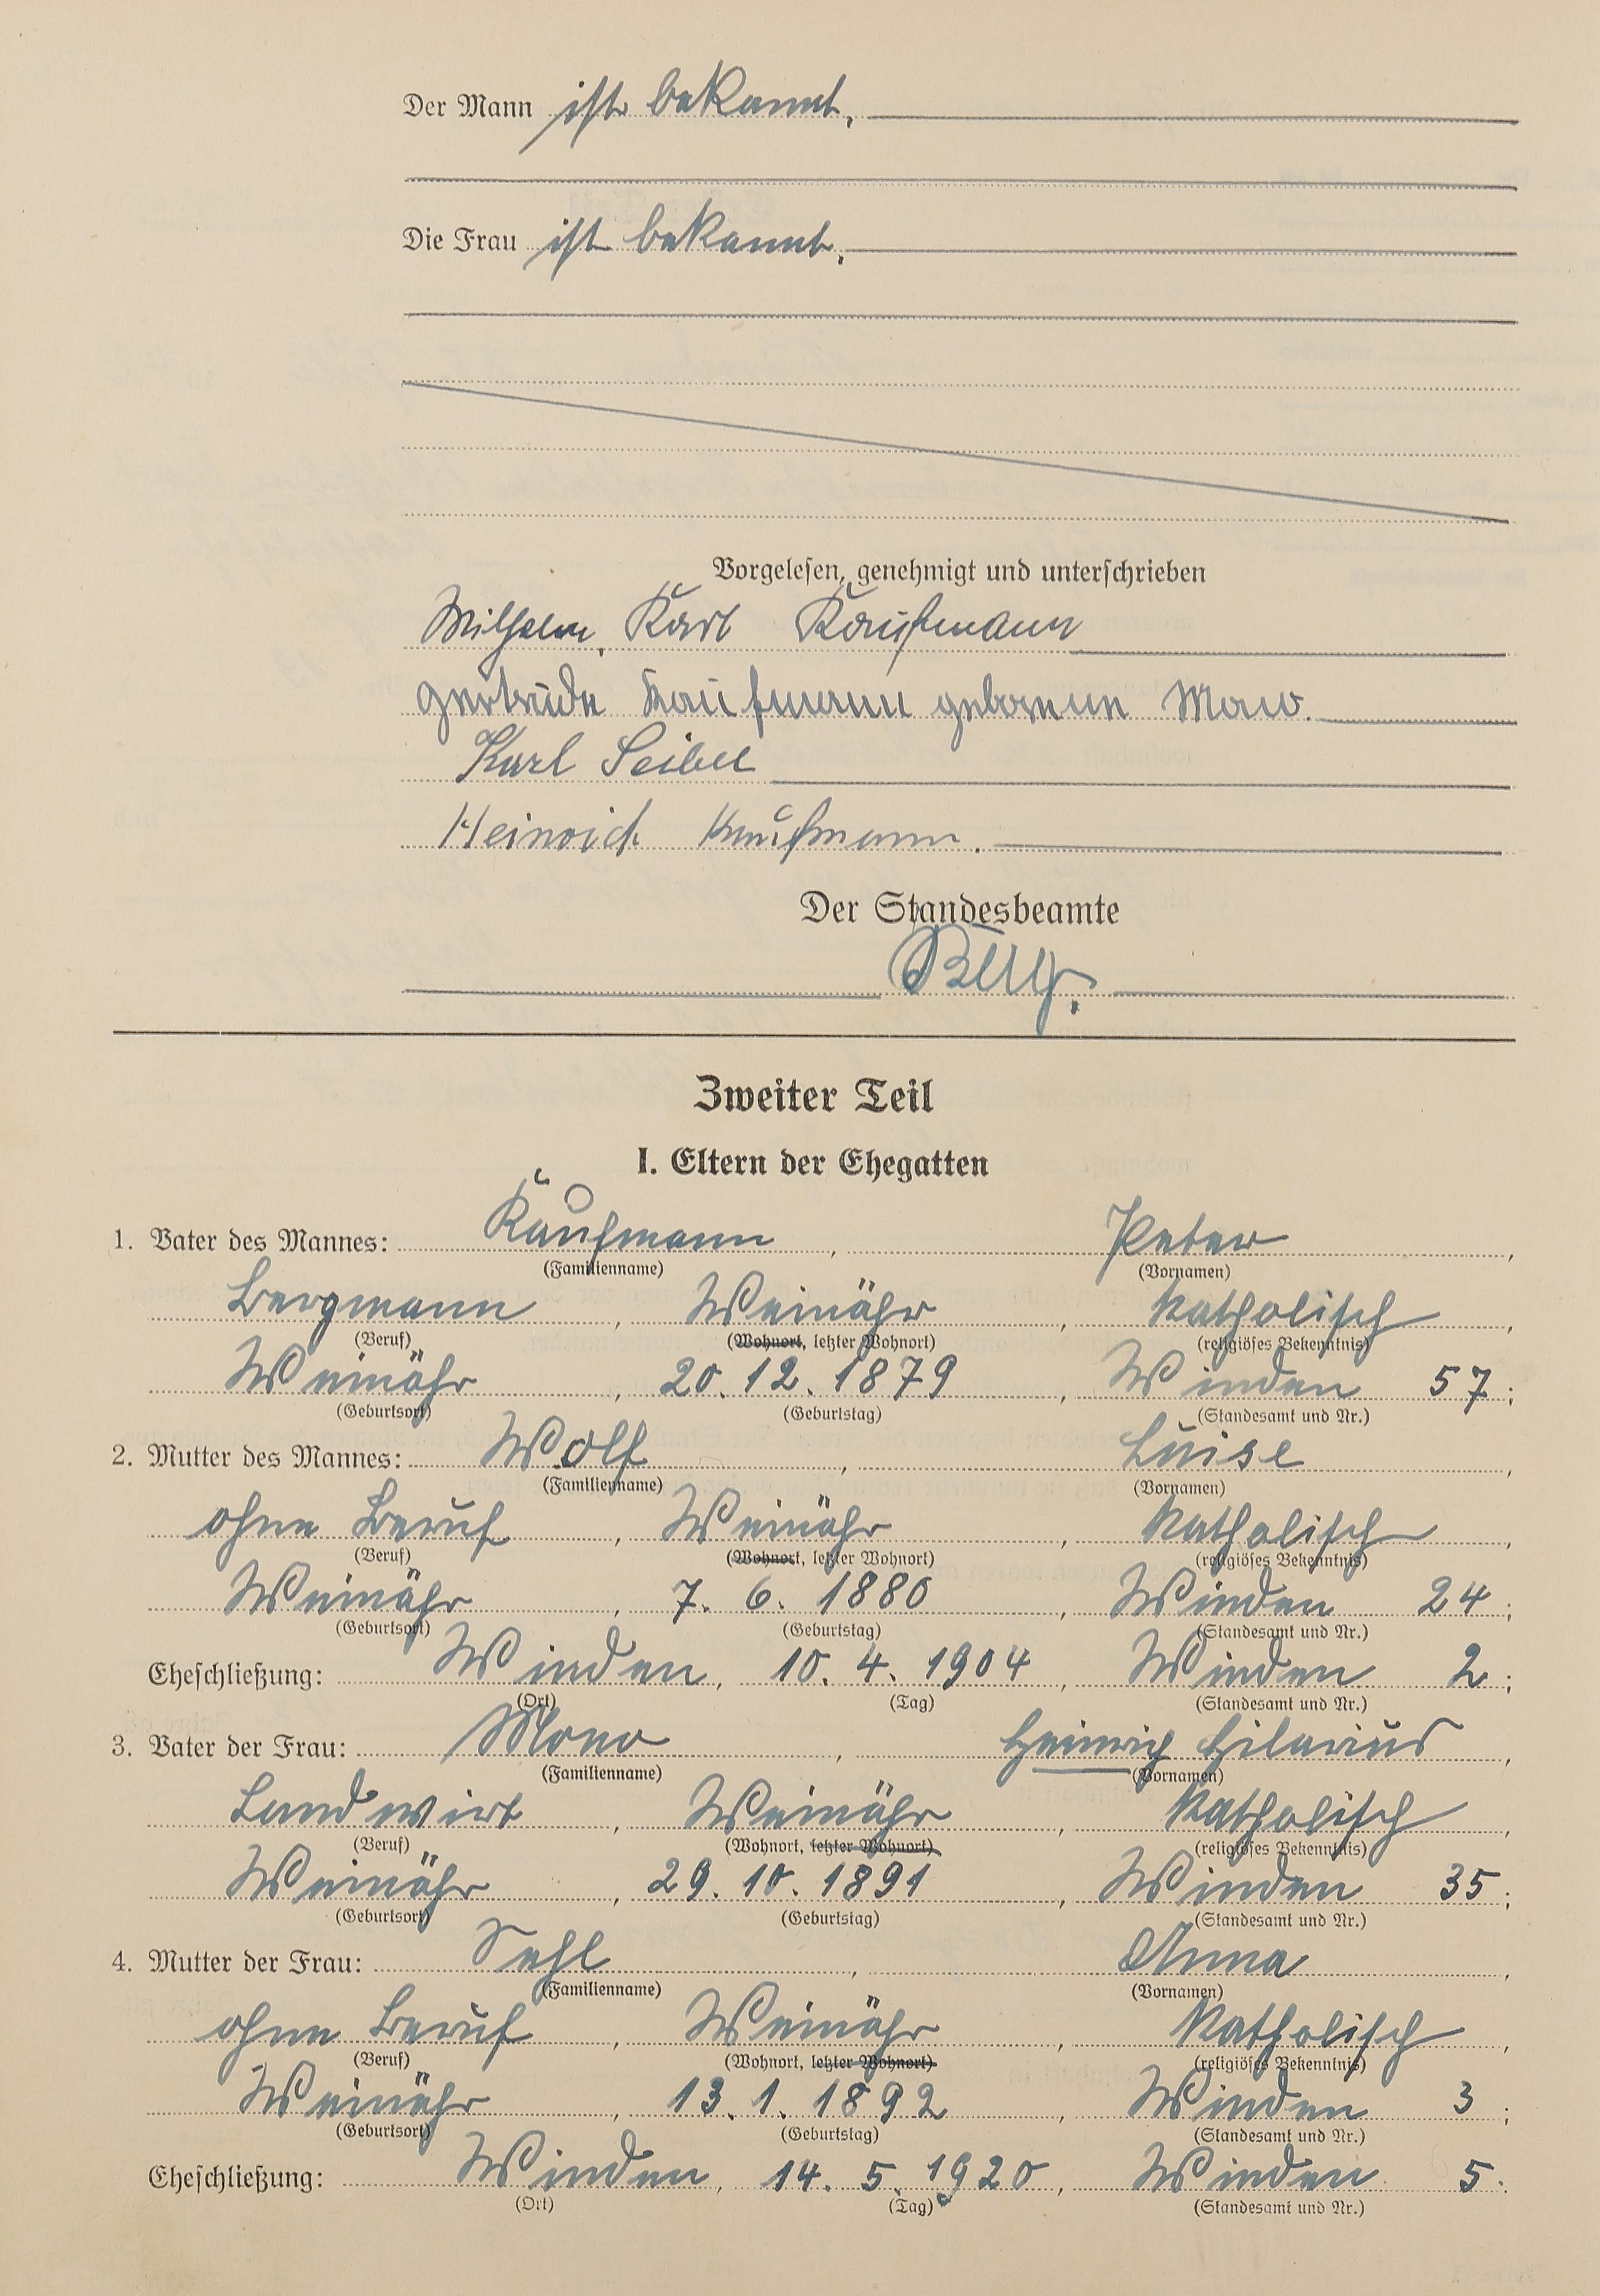 Der Mann ist bekannt.
Die Frau ist bekannt.
Vorgelesen, genehmigt und unterschrieben
Wilhelm, Karl Kaufmann
Gertrude Kaufmann geborene
Karl Seibel
Heinrich Kaufmann.
Der Standesbeamte
Zweiter Teil
I. Eltern der Ehegatten
1. Vater des Mannes: Kaufmann, Peter,
(Familienname) (Vornamen)
Bergmann, Weinähr, katholisch,
(Beruf) (Wohnort, letzter Wohnort) (religiöses Bekenntnis)
Weinähr, 20. 12. 1879, Winden 57;
(Geburtsort) (Geburtstag) (Standesamt und Nr.)
2. Mutter des Mannes: Wolf, Luise,
(Familienname) (Vornamen)
ohne Beruf, Weinähr, katholisch,
(Beruf) (Wohnort, letzter Wohnort) (religiöses Bekenntnis)
Weinähr, 7. 6. 1880, Winden 24;
(Geburtsort) (Geburtstag) (Standesamt und Nr.)
Eheschließung: Winden, 10. 4. 1904, Winden 2;
(Ort) (Tag) (Standesamt und Nr.)
3. Vater der Frau: Heinrich Hilarius,
(Familienname) (Vornamen)
Landwirt, Weinähr, katholisch,
(Beruf) (Wohnort, letzter Wohnort) (religiöses Bekenntnis)
Weinähr, 29. 10. 1891, Winden 35;
(Geburtsort) (Geburtstag) (Standesamt und Nr.)
4. Mutter der Frau: Sehl, Anna,
(Familienname) (Vornamen)
ohne Beruf, Weinähr, katholisch,
(Beruf) (Wohnort, letzter Wohnort) (religiöses Bekenntnis)
Weinähr, 13. 1. 1892, Winden 3;
(Geburtsort) (Geburtstag) (Standesamt und Nr.)
Eheschließung: Winden, 14. 5. 1920, Winden 5.
(Ort) (Tag) (Standesamt und Nr.)